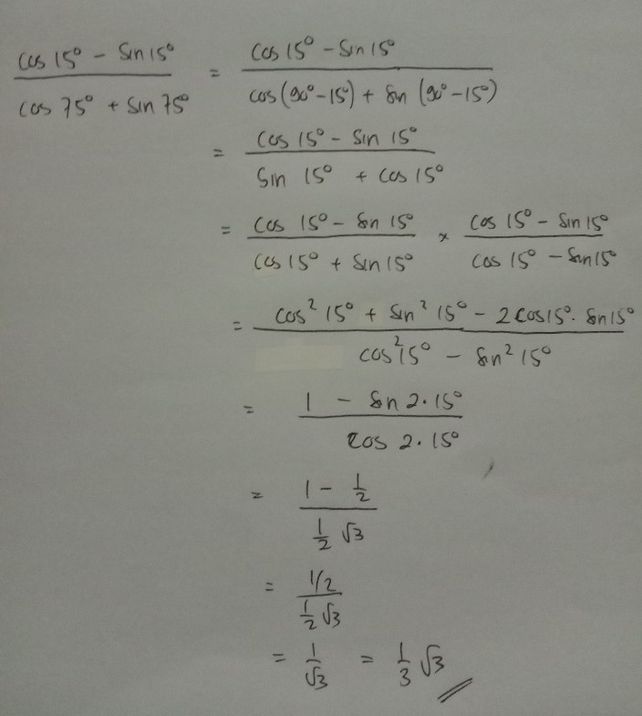 (cos 15° - sin 15°)/(cos 75° + sin 75°) = (cos 15° - sin 15°)/(cos (90° - 15°) + sin (90° - 15°))
= (cos 15° - sin 15°)/(sin 15° + cos 15°)
= (cos 15° - sin 15°)/(cos 15° + sin 15°) × (cos 15° - sin 15°)/(cos 15° - sin 15°)
= (cos² 15° + sin² 15° - 2 cos 15° · sin 15°)/(cos² 15° - sin² 15°)
= (1 - sin 2·15°)/(cos 2·15°)
= (1 - 1/2)/(1/2 √3)
= (1/2)/(1/2 √3)
= 1/√3 = 1/3 √3